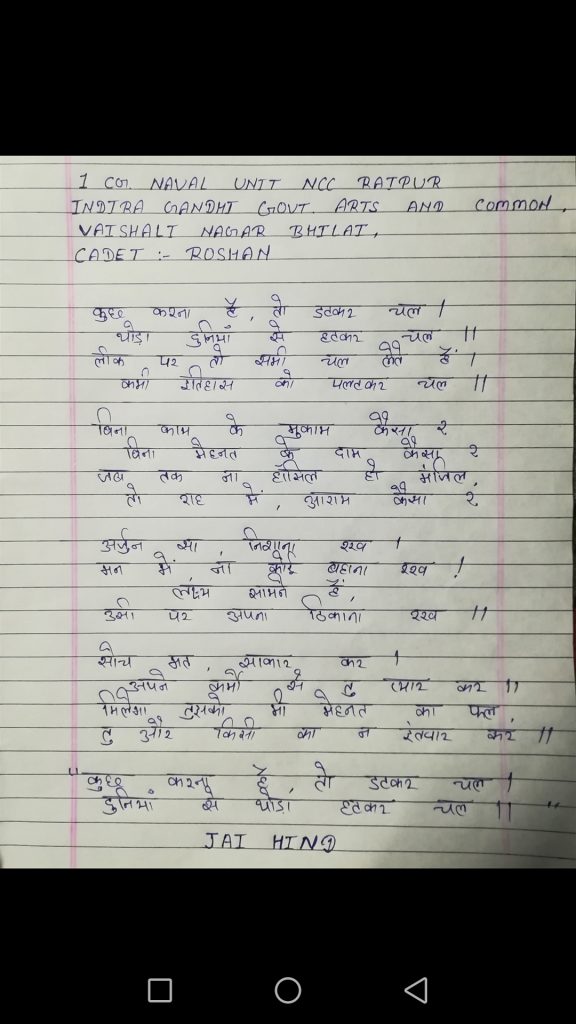 1 CG. NAVAL UNIT NCC RAIPUR
INDIRA GANDHI GOVT. ARTS AND COMMON,
VAISHALI NAGAR BHILAI,
CADET :- ROSHAN
कुछ करना है, तो डटकर चल ।
थोड़ा दुनियां से हटकर चल ।।
लीक पर तो सभी चल लेते हैं ।
कभी इतिहास को पलटकर चल ।।
बिना काम के मुकाम कैसा ?
बिना मेहनत के दाम कैसा ?
जब तक ना हाँसिल हो मंजिल,
तो राह में, आराम कैसा ?
अर्जुन सा, निशाना रख ।
मन में, ना कोई बहाना रख !
लक्ष्य सामने हैं,
उसी पर अपना ठिकाना रख ।।
सोच मत, साकार कर ।
अपने कर्मो से तु प्यार कर ।।
मिलेगा तुझको भी मेहनत का फल,
तु और किसी का न इंतवार कर ।।
"कुछ करना है, तो डटकर चल ।
दुनियां से थोड़ा हटकर चल ।। "
JAI HIND